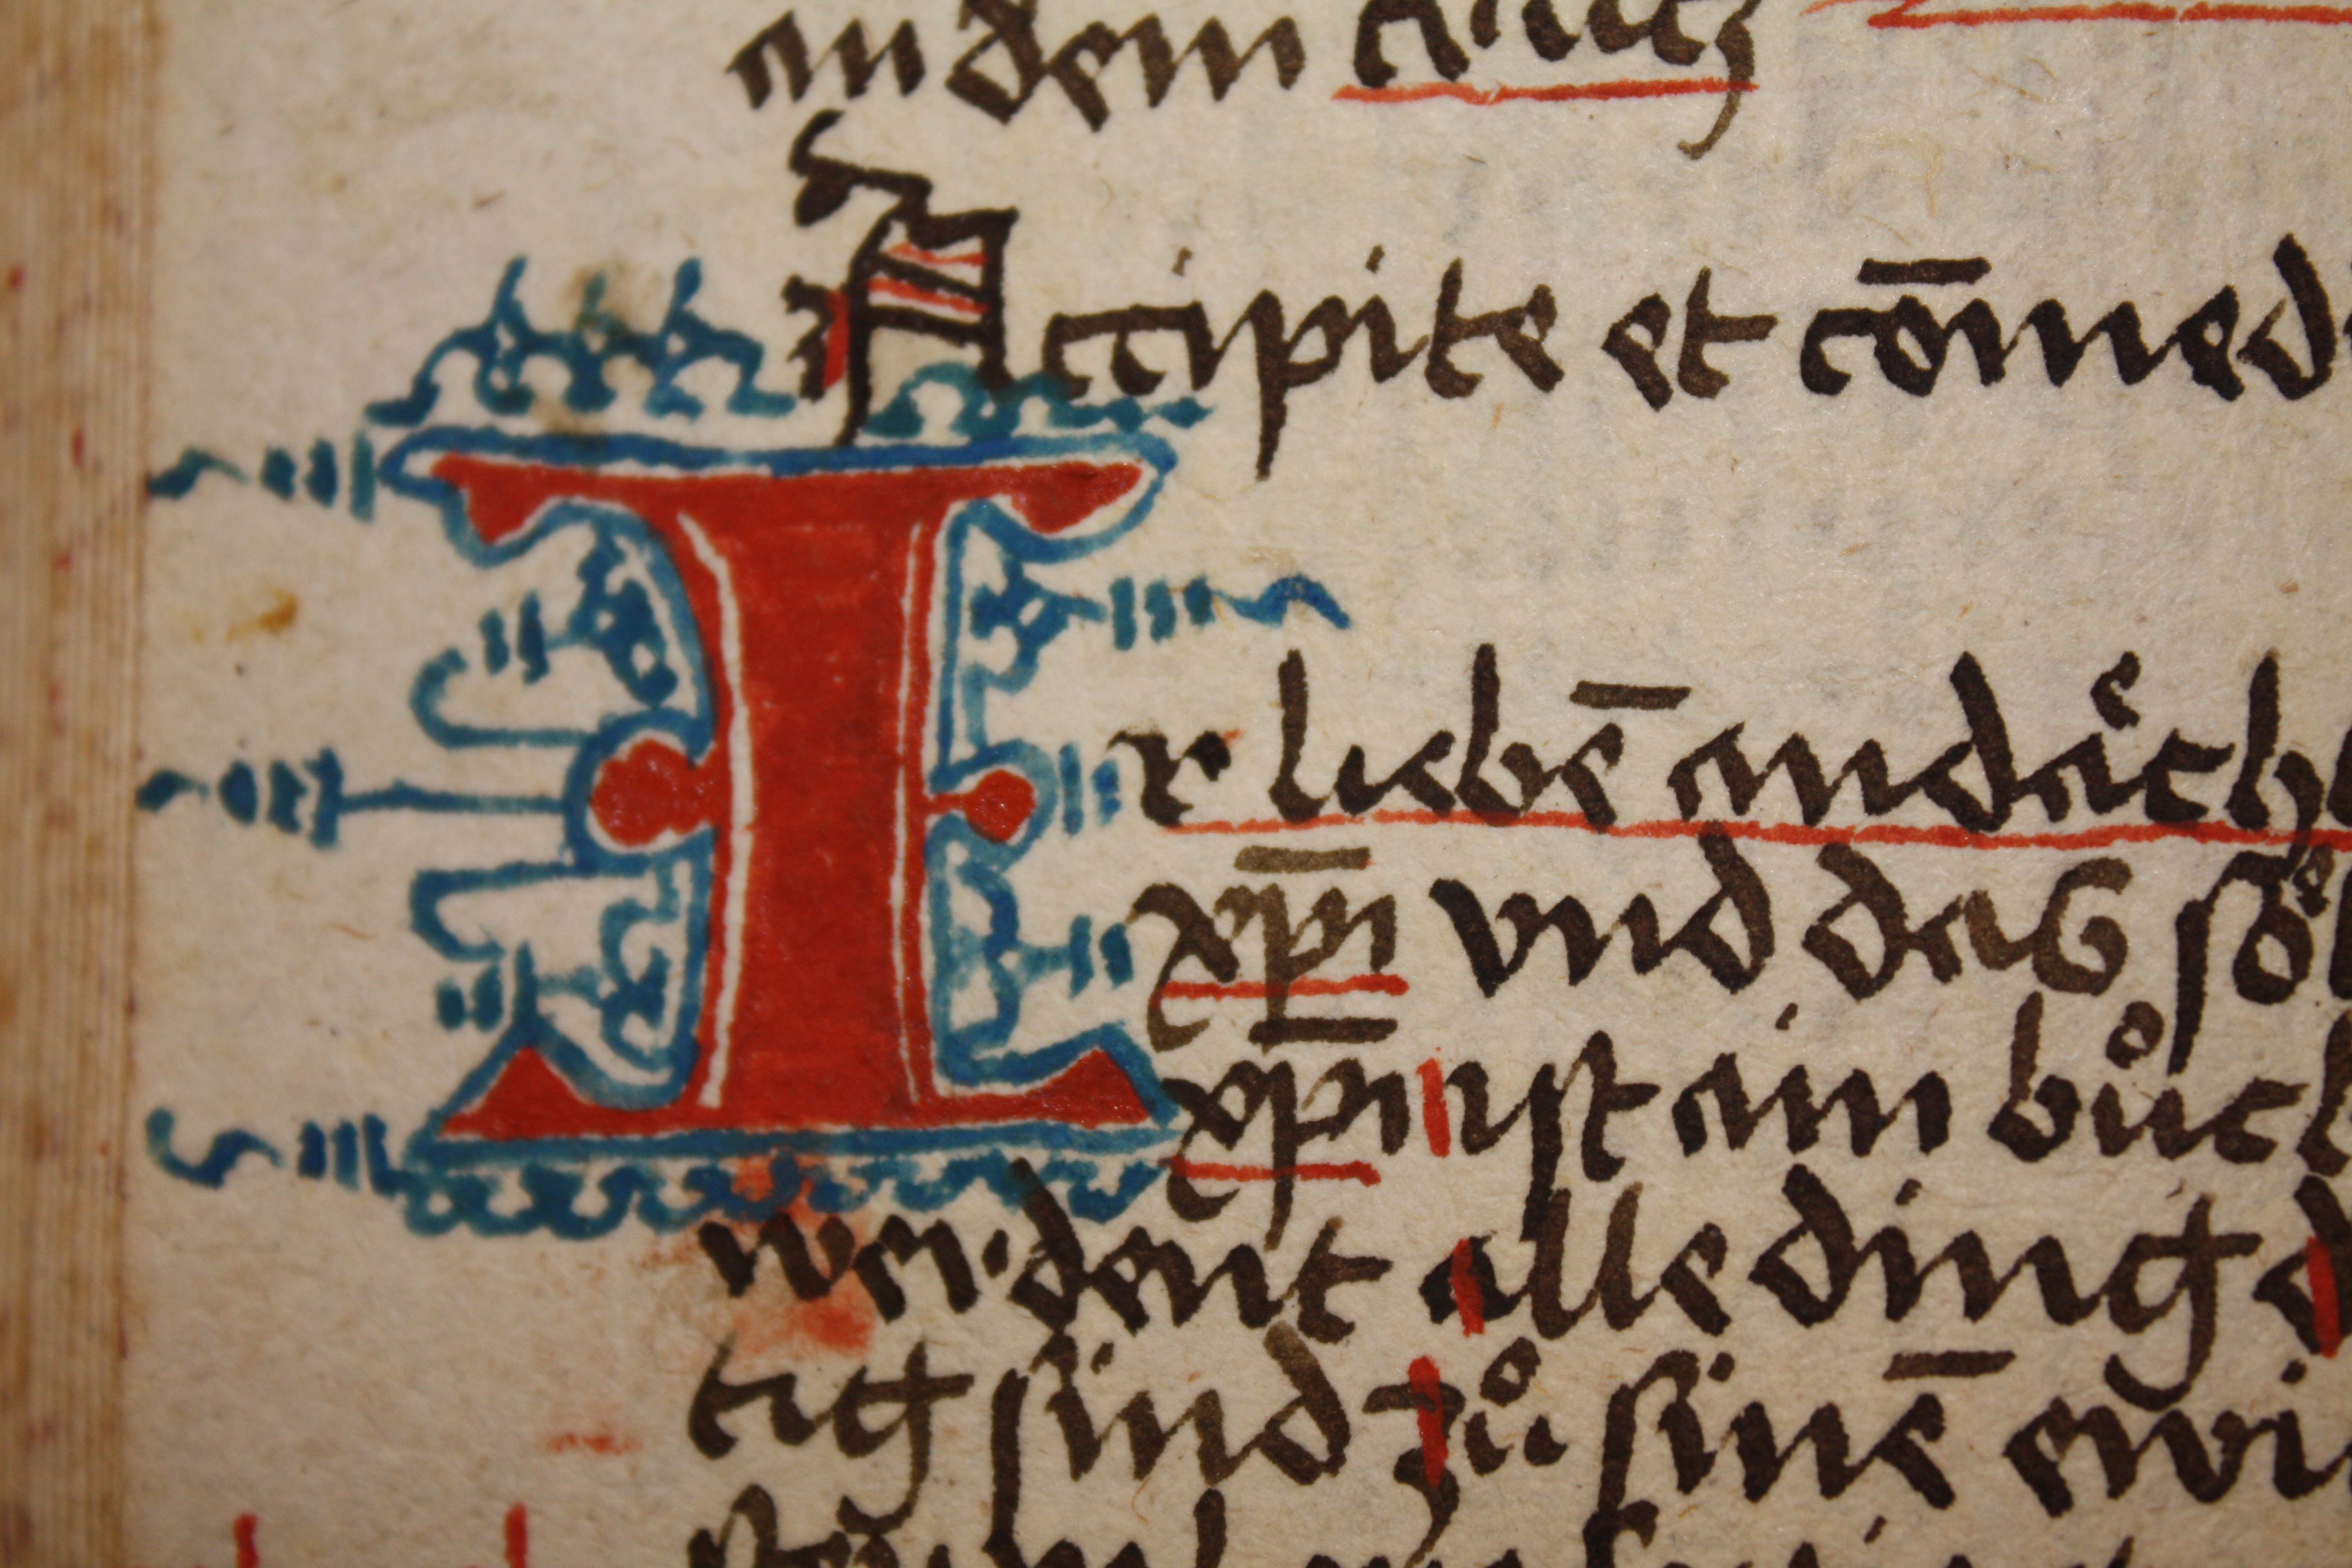 an dem
Accipite et cōmed
Ir liebē andaͤch
xp̄i vnd das soͤl
xp̄i ist ain buͦch
werdent alle ding d
tig sind zuͦ sinē ewi